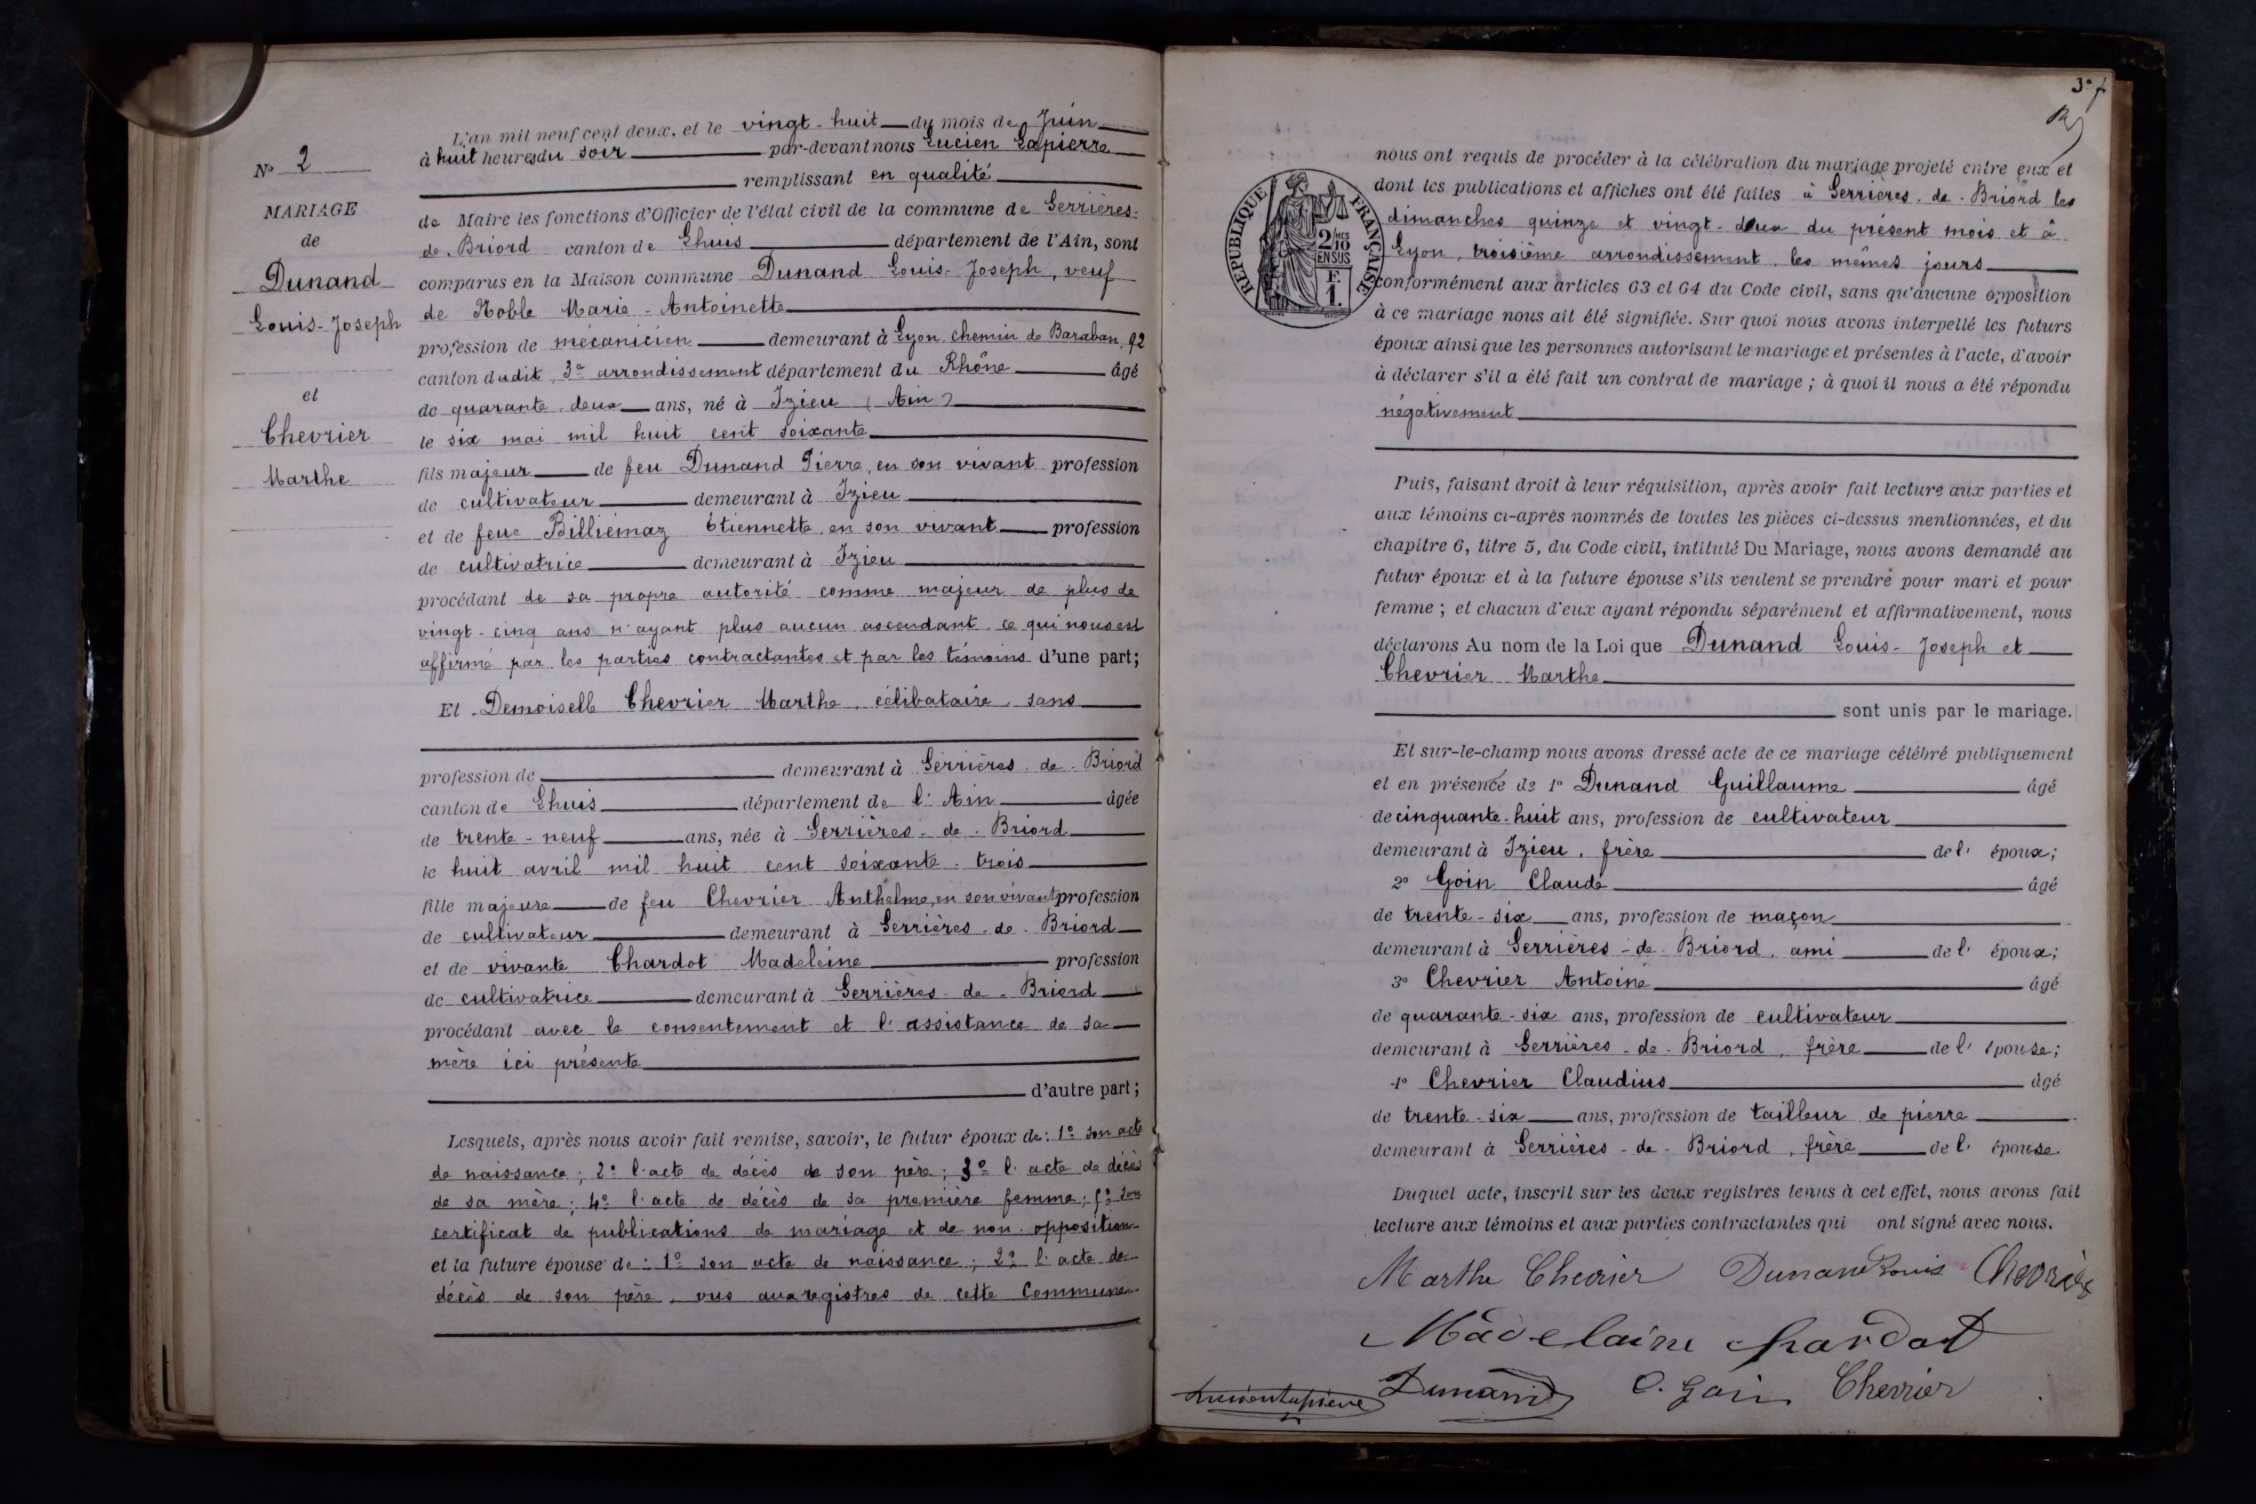 L'an mil neuf cent deux, et le vingt-huit du mois de Juin
à huit heures du soir par-devant nous Lucien Lapierre
remplissant en qualité
N° 2
MARIAGE
de
Dunand
Louis-Joseph
et
Chevrier
Marthe
de Maire les fonctions d'Officier de l'état civil de la commune de Serrières-
de-Briord canton de Lhuis département de l'Ain, sont
comparus en la Maison commune Dunand Louis-Joseph, veuf
de Noble Marie-Antoinette
profession de mécanicien demeurant à Lyon chemin de Baraban, 92
canton dudit 3e arrondissement département du Rhône âgé
de quarante-deux ans, né à Izieu (Ain)
le six mai mil huit cent soixante
fils majeur de feu Dunand Pierre, en son vivant profession
de cultivateur demeurant à Izieu
et de feue Billiémaz Etiennette en son vivant profession
de cultivatrice demeurant à Izieu
procédant de sa propre autorité comme majeur de plus de
vingt-cinq ans n'ayant plus aucun ascendant ce qui nous est
affirmé par les parties contractantes et par les témoins d'une part;
Et Demoiselle Chevrier Marthe, célibataire, sans
profession de demeurant à Serrières-de-Briord
canton de Lhuis département de l'Ain âgée
de trente-neuf ans, née à Serrières-de-Briord
le huit avril mil huit cent soixante-trois
fille majeure de feu Chevrier Anthelme, en son vivant profession
de cultivateur demeurant à Serrières-de-Briord
et de vivante Chardot Madeleine profession
de cultivatrice demeurant à Serrières-de-Briord
procédant avec le consentement et l'assistance de sa
mère ici présente
d'autre part;
Lesquels, après nous avoir fait remise, savoir, le futur époux de: 1° son acte
de naissance; 2° l'acte de décès de son père; 3° l'acte de décès
de sa mère; 4° l'acte de décès de sa première femme; 5° son
certificat de publications de mariage et de non-opposition
et la future épouse de: 1° son acte de naissance; 2° l'acte de
décès de son père, vus aux registres de cette Commune
3e f
nous ont requis de procéder à la célébration du mariage projeté entre eux et
dont les publications et affiches ont été faites à Serrières-de-Briord les
dimanches quinze et vingt-deux du présent mois et à
Lyon, troisième arrondissement les mêmes jours
RÉPUBLIQUE FRANÇAISE
2/10
MES
EN SUS
F.
1.
conformément aux articles 63 et 64 du Code civil, sans qu'aucune opposition
à ce mariage nous ait été signifiée. Sur quoi nous avons interpellé les futurs
époux ainsi que les personnes autorisant le mariage et présentes à l'acte, d'avoir
à déclarer s'il a été fait un contrat de mariage; à quoi il nous a été répondu
négativement
Puis, faisant droit à leur réquisition, après avoir fait lecture aux parties et
aux témoins ci-après nommés de toutes les pièces ci-dessus mentionnées, et du
chapitre 6, titre 5, du Code civil, intitulé Du Mariage, nous avons demandé au
futur époux et à la future épouse s'ils veulent se prendre pour mari et pour
femme; et chacun d'eux ayant répondu séparément et affirmativement, nous
déclarons Au nom de la Loi que Dunand Louis-Joseph et
Chevrier Marthe
sont unis par le mariage.
Et sur-le-champ nous avons dressé acte de ce mariage célébré publiquement
et en présence de 1° Dunand Guillaume âgé
de cinquante-huit ans, profession de cultivateur
demeurant à Izieu, frère de l'époux;
2° Goin Claude âgé
de trente-six ans, profession de maçon
demeurant à Serrières-de-Briord, ami de l'époux;
3° Chevrier Antoine âgé
de quarante-six ans, profession de cultivateur
demeurant à Serrières-de-Briord, frère de l'épouse;
4° Chevrier Claudius âgé
de trente-six ans, profession de tailleur de pierre
demeurant à Serrières-de-Briord, frère de l'épouse.
Duquel acte, inscrit sur les deux registres tenus à cet effet, nous avons fait
lecture aux témoins et aux parties contractantes qui ont signé avec nous.
Marthe Chevrier Dunand Louis Chevrier
Madelaine Chardot
Lucien Lapierre Dunand C. Goin Chevrier